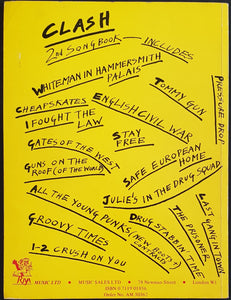 CLASH
2ND SONGBOOK — INCLUDES
WHITEMAN IN HAMMERSMITH
PALAIS
TOMMY GUN
PRESSURE DROP
CHEAPSKATES
ENGLISH CIVIL WAR
I FOUGHT THE
LAW
STAY
FREE
GATES OF THE WEST
SAFE EUROPEAN
HOME
GUNS ON THE
ROOF (OF THE WORLD)
JULIE'S IN THE DRUG SQUAD
ALL THE YOUNG PUNKS (NEW BOOTS &
CONTRACTS)
LAST GANG IN TOWN
THE PRISONER
DRUG STABBIN TIME
GROOVY TIMES
1-2 CRUSH ON YOU
MUSIC LTD • MUSIC SALES LTD • 78 Newman Street • London W1
ISBN 0.7119.01856